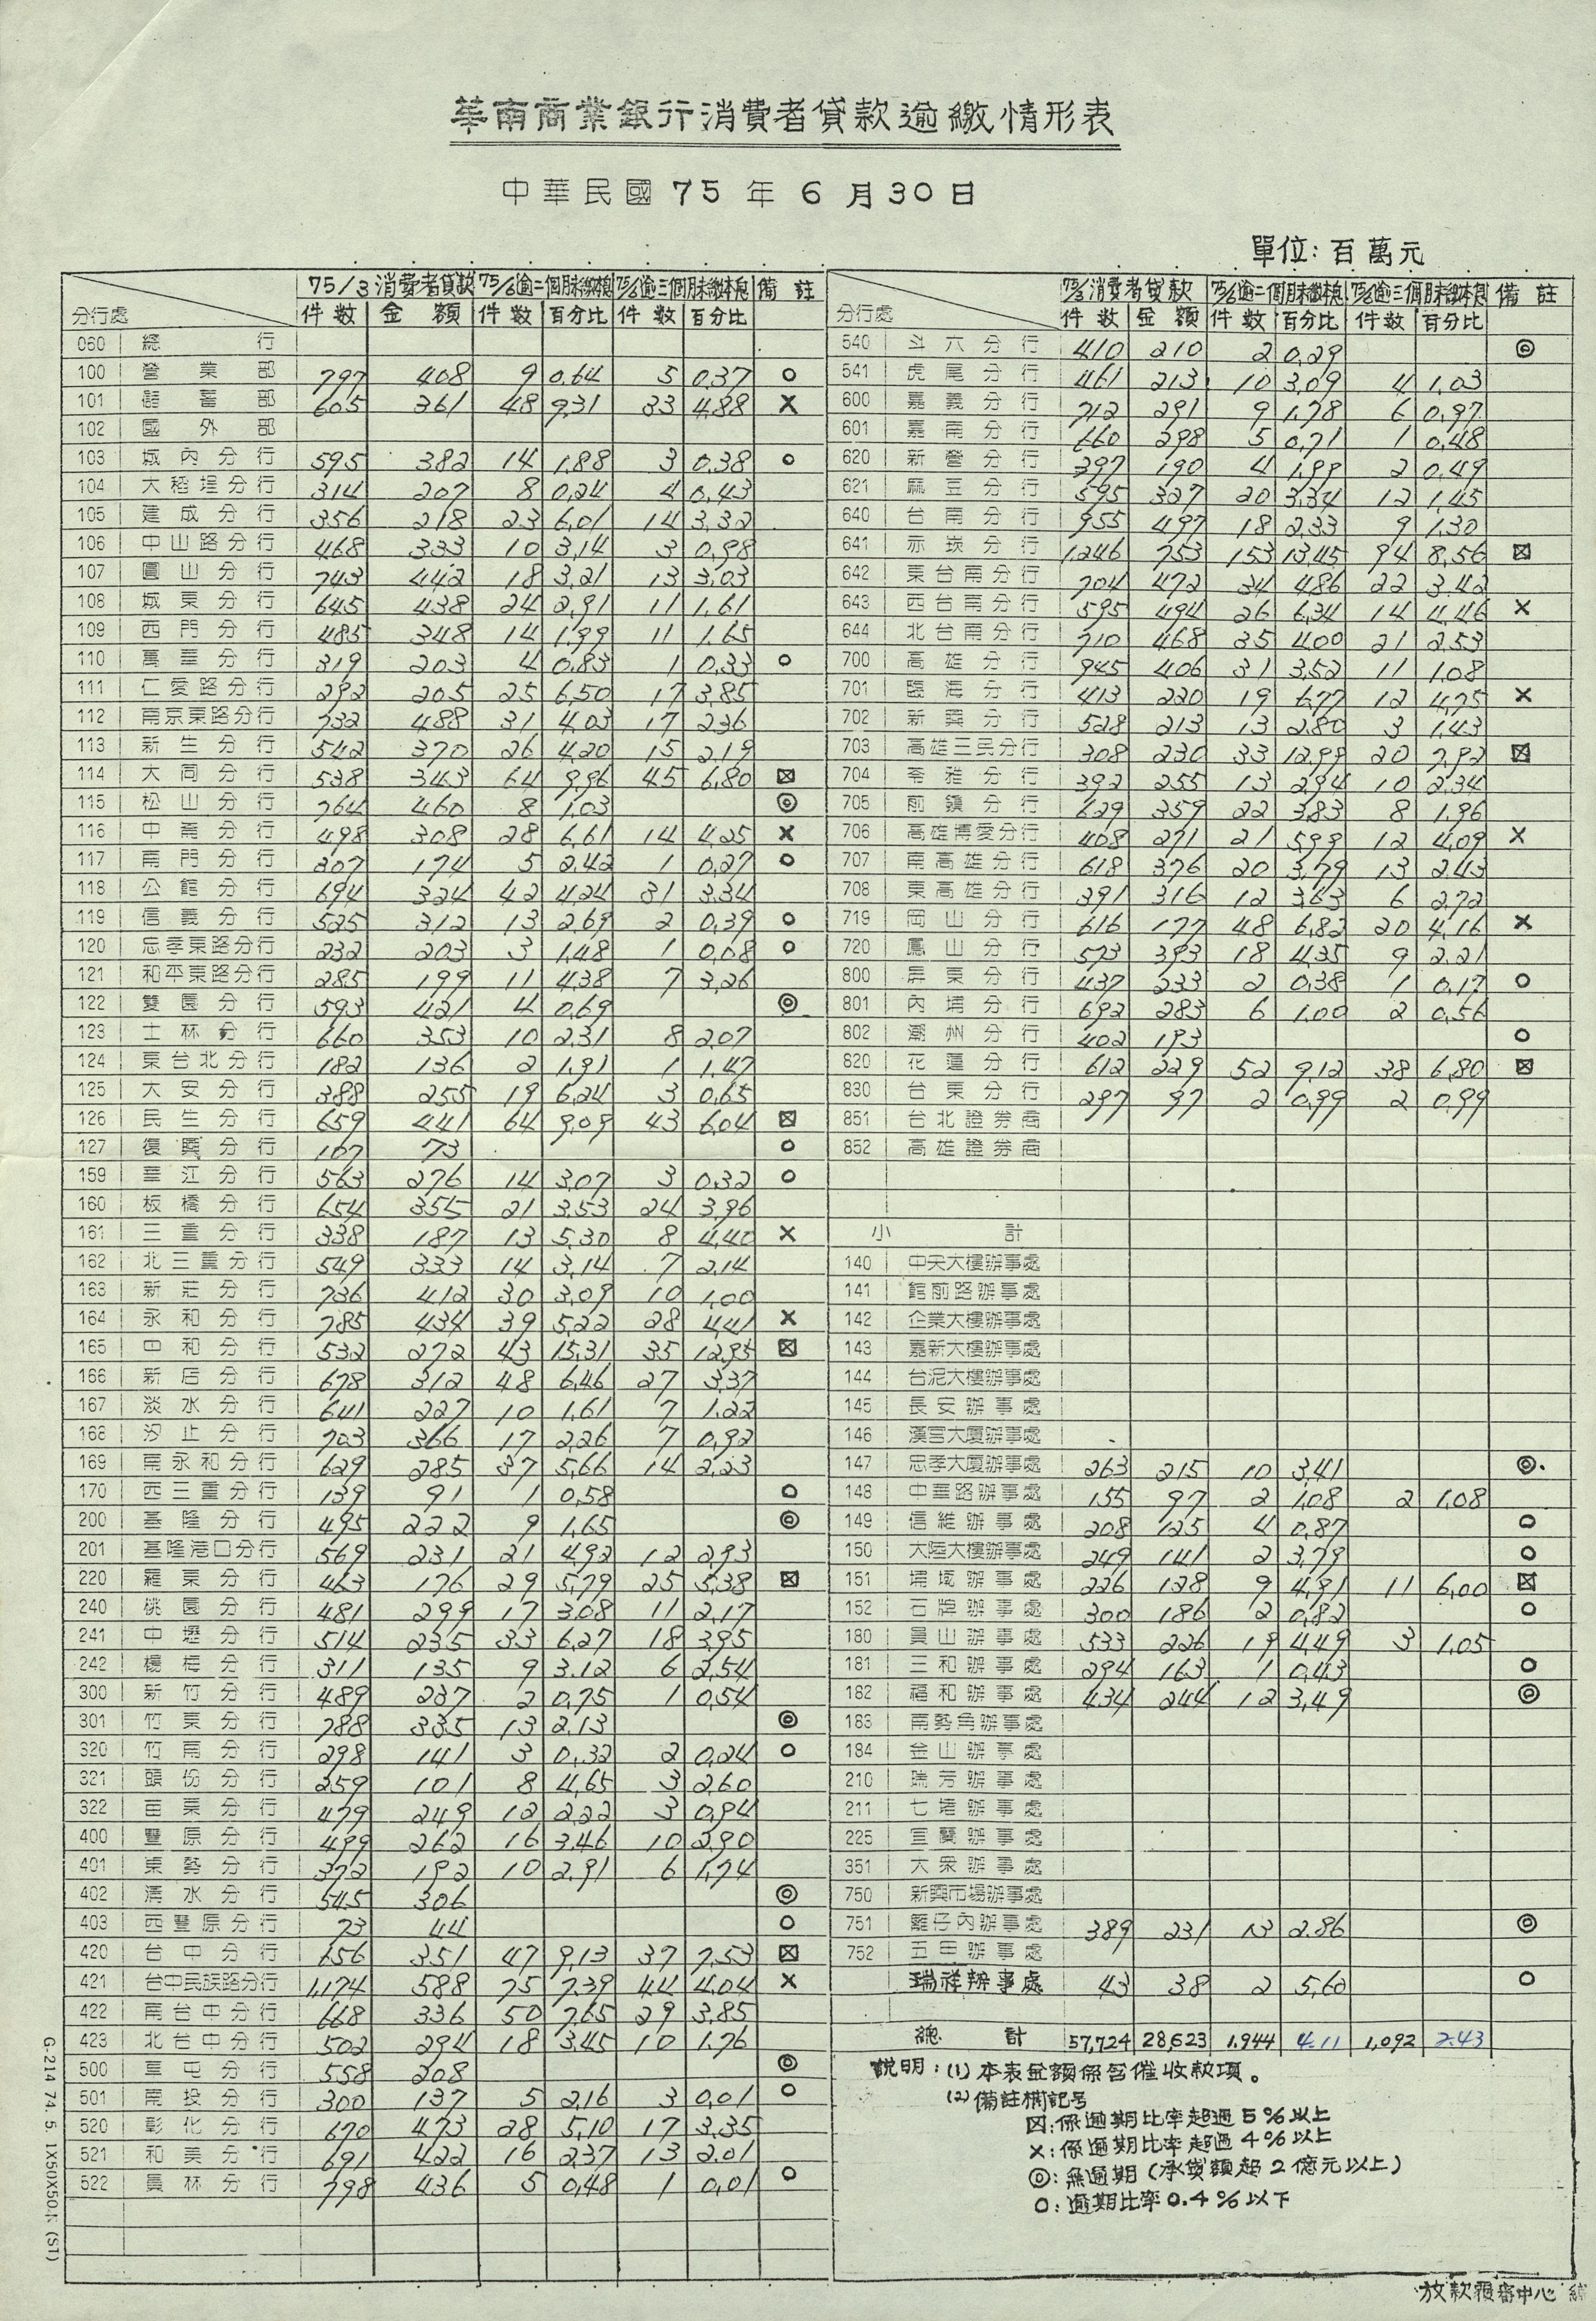 華南商業銀行消費者貸款逾繳情形表
中華民國 75 年 6 月 30 日
單位: 百萬元
分行處 75/3 消費者貸款 75/6逾二個月未繳本息 75/6逾三個月未繳本息 備註
件數 金額 件數 百分比 件數 百分比
060 總行
100 營業部 797 408 9 0.64 5 0.37 ○
101 儲蓄部 605 361 48 9.31 33 4.88 ×
102 國外部
103 城內分行 595 382 14 1.88 3 0.38 ○
104 大稻埕分行 314 207 8 0.24 4 0.43
105 建成分行 356 218 23 6.01 14 3.32
106 中山路分行 468 333 10 3.14 3 0.98
107 圓山分行 743 442 18 3.21 13 3.03
108 城東分行 645 438 24 2.91 11 1.61
109 西門分行 485 348 14 1.99 11 1.65
110 萬華分行 319 203 4 0.83 1 0.33 ○
111 仁愛路分行 292 205 25 6.50 17 3.85
112 南京東路分行 732 488 31 4.03 17 2.36
113 新生分行 542 370 26 4.20 15 2.19
114 大同分行 538 343 64 9.96 45 6.80 ☒
115 松山分行 764 460 8 1.03 ◎
116 中崙分行 498 308 28 6.61 14 4.25 ×
117 南門分行 307 174 5 2.42 1 0.27 ○
118 公館分行 694 324 42 4.24 31 3.34
119 信義分行 525 312 13 2.69 2 0.39 ○
120 忠孝東路分行 232 203 3 1.48 1 0.08 ○
121 和平東路分行 285 199 11 4.38 7 3.26
122 雙園分行 593 421 4 0.69 ◎
123 士林分行 660 353 10 2.31 8 2.07
124 東台北分行 182 136 2 1.91 1 1.47
125 大安分行 388 255 19 6.24 3 0.65
126 民生分行 659 441 64 9.09 43 6.04 ☒
127 復興分行 107 73 ○
159 華江分行 563 276 14 3.07 3 0.32 ○
160 板橋分行 654 355 21 3.53 24 3.96
161 三重分行 338 187 13 5.30 8 4.40 ×
162 北三重分行 549 333 14 3.14 7 2.14
163 新莊分行 736 412 30 3.09 10 1.00
164 永和分行 785 434 39 5.22 28 4.41 ×
165 中和分行 532 272 43 15.31 35 12.95 ☒
166 新店分行 678 312 48 6.46 27 3.37
167 淡水分行 641 227 10 1.61 7 1.22
168 汐止分行 703 366 17 2.26 7 0.92
169 南永和分行 629 285 37 5.66 14 2.23
170 西三重分行 139 91 1 0.58 ○
200 基隆分行 495 222 9 1.65 ◎
201 基隆港口分行 569 231 21 4.92 12 2.93
220 羅東分行 463 176 29 5.79 25 5.38 ☒
240 桃園分行 481 299 17 3.08 11 2.17
241 中壢分行 514 235 33 6.27 18 3.95
242 楊梅分行 311 135 9 3.12 6 2.54
300 新竹分行 489 237 2 0.75 1 0.54
301 竹東分行 788 335 13 2.13 ◎
320 竹南分行 298 141 3 0.32 2 0.24 ○
321 頭份分行 259 101 8 4.65 3 2.60
322 苗栗分行 479 249 12 2.22 3 0.94
400 豐原分行 499 262 16 3.46 10 2.90
401 東勢分行 372 192 10 2.91 6 1.74
402 清水分行 545 306 ◎
403 西豐原分行 73 44 ○
420 台中分行 656 351 47 9.13 37 7.53 ☒
421 台中民族路分行 1,174 588 75 7.39 44 4.04 ×
422 南台中分行 668 336 50 7.65 29 3.85
423 北台中分行 502 294 18 3.45 10 1.76
500 草屯分行 558 208 ◎
501 南投分行 300 137 5 2.16 3 0.01 ○
520 彰化分行 670 473 28 5.10 17 3.35
521 和美分行 691 422 16 2.37 13 2.01
522 員林分行 798 436 5 0.48 1 0.01 ○
分行處 75/3 消費者貸款 75/6逾二個月未繳本息 75/6逾三個月未繳本息 備註
件數 金額 件數 百分比 件數 百分比
540 斗六分行 410 210 2 0.29 ◎
541 虎尾分行 461 213 10 3.09 4 1.03
600 嘉義分行 712 291 9 1.78 6 0.97
601 嘉南分行 660 298 5 0.71 1 0.48
620 新營分行 397 190 4 1.99 2 0.49
621 麻豆分行 595 327 20 3.34 12 1.45
640 台南分行 955 497 18 2.33 9 1.30
641 赤崁分行 1,246 753 153 13.45 94 8.56 ☒
642 東台南分行 704 472 34 4.86 22 3.42
643 西台南分行 595 494 26 6.34 14 4.46 ×
644 北台南分行 710 468 35 4.00 21 2.53
700 高雄分行 945 406 31 3.52 11 1.08
701 臨海分行 413 220 19 6.77 12 4.75 ×
702 新興分行 528 213 13 2.80 3 1.43
703 高雄三民分行 308 230 33 12.99 20 7.92 ☒
704 苓雅分行 392 255 13 2.94 10 2.34
705 前鎮分行 629 359 22 3.83 8 1.96
706 高雄博愛分行 408 271 21 5.99 12 4.09 ×
707 南高雄分行 618 376 20 3.79 13 2.43
708 東高雄分行 391 316 12 3.63 6 2.72
719 岡山分行 616 177 48 6.82 20 4.16 ×
720 鳳山分行 573 393 18 4.35 9 2.21
800 屏東分行 437 233 2 0.38 1 0.17 ○
801 內埔分行 692 283 6 1.00 2 0.56
802 潮州分行 402 193 ○
820 花蓮分行 612 229 52 9.12 38 6.80 ☒
830 台東分行 297 97 2 0.99 2 0.99
851 台北證券商
852 高雄證券商
小計
140 中央大樓辦事處
141 館前路辦事處
142 企業大樓辦事處
143 嘉新大樓辦事處
144 台泥大樓辦事處
145 長安辦事處
146 漢宮大廈辦事處
147 忠孝大廈辦事處 263 215 10 3.41 ◎
148 中華路辦事處 155 97 2 1.08 2 1.08
149 信維辦事處 208 125 4 0.87 ○
150 大陸大樓辦事處 249 141 2 3.79 ○
151 埔墘辦事處 226 128 9 4.91 11 6.00 ☒
152 石牌辦事處 300 186 2 0.82 ○
180 員山辦事處 533 226 19 4.49 3 1.05
181 三和辦事處 294 163 1 0.43 ○
182 福和辦事處 434 244 12 3.49 ◎
183 南勢角辦事處
184 金山辦事處
210 瑞芳辦事處
211 七堵辦事處
225 宜蘭辦事處
351 大眾辦事處
750 新興市場辦事處
751 籬仔內辦事處 389 231 13 2.86 ◎
752 五甲辦事處
瑞祥辦事處 43 38 2 5.60 ○
總計 57,724 28,623 1,944 4.11 1,092 2.43
說明: (1) 本表金額係含催收款項。
(2) 備註欄記号
☒: 係逾期比率超過 5% 以上
×: 係逾期比率超過 4% 以上
◎: 無逾期 (承貸額超 2 億元以上)
○: 逾期比率 0.4% 以下
G-214 74. 5. 1X50X50本 (ST)
放款覆審中心